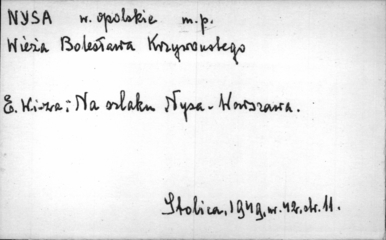 NYSA w. opolskie m.p.
Wieża Bolesława Krzywoustego
Na szlaku Nysa - Warszawa.
Stolica, 1949, nr. 42, str. 11.